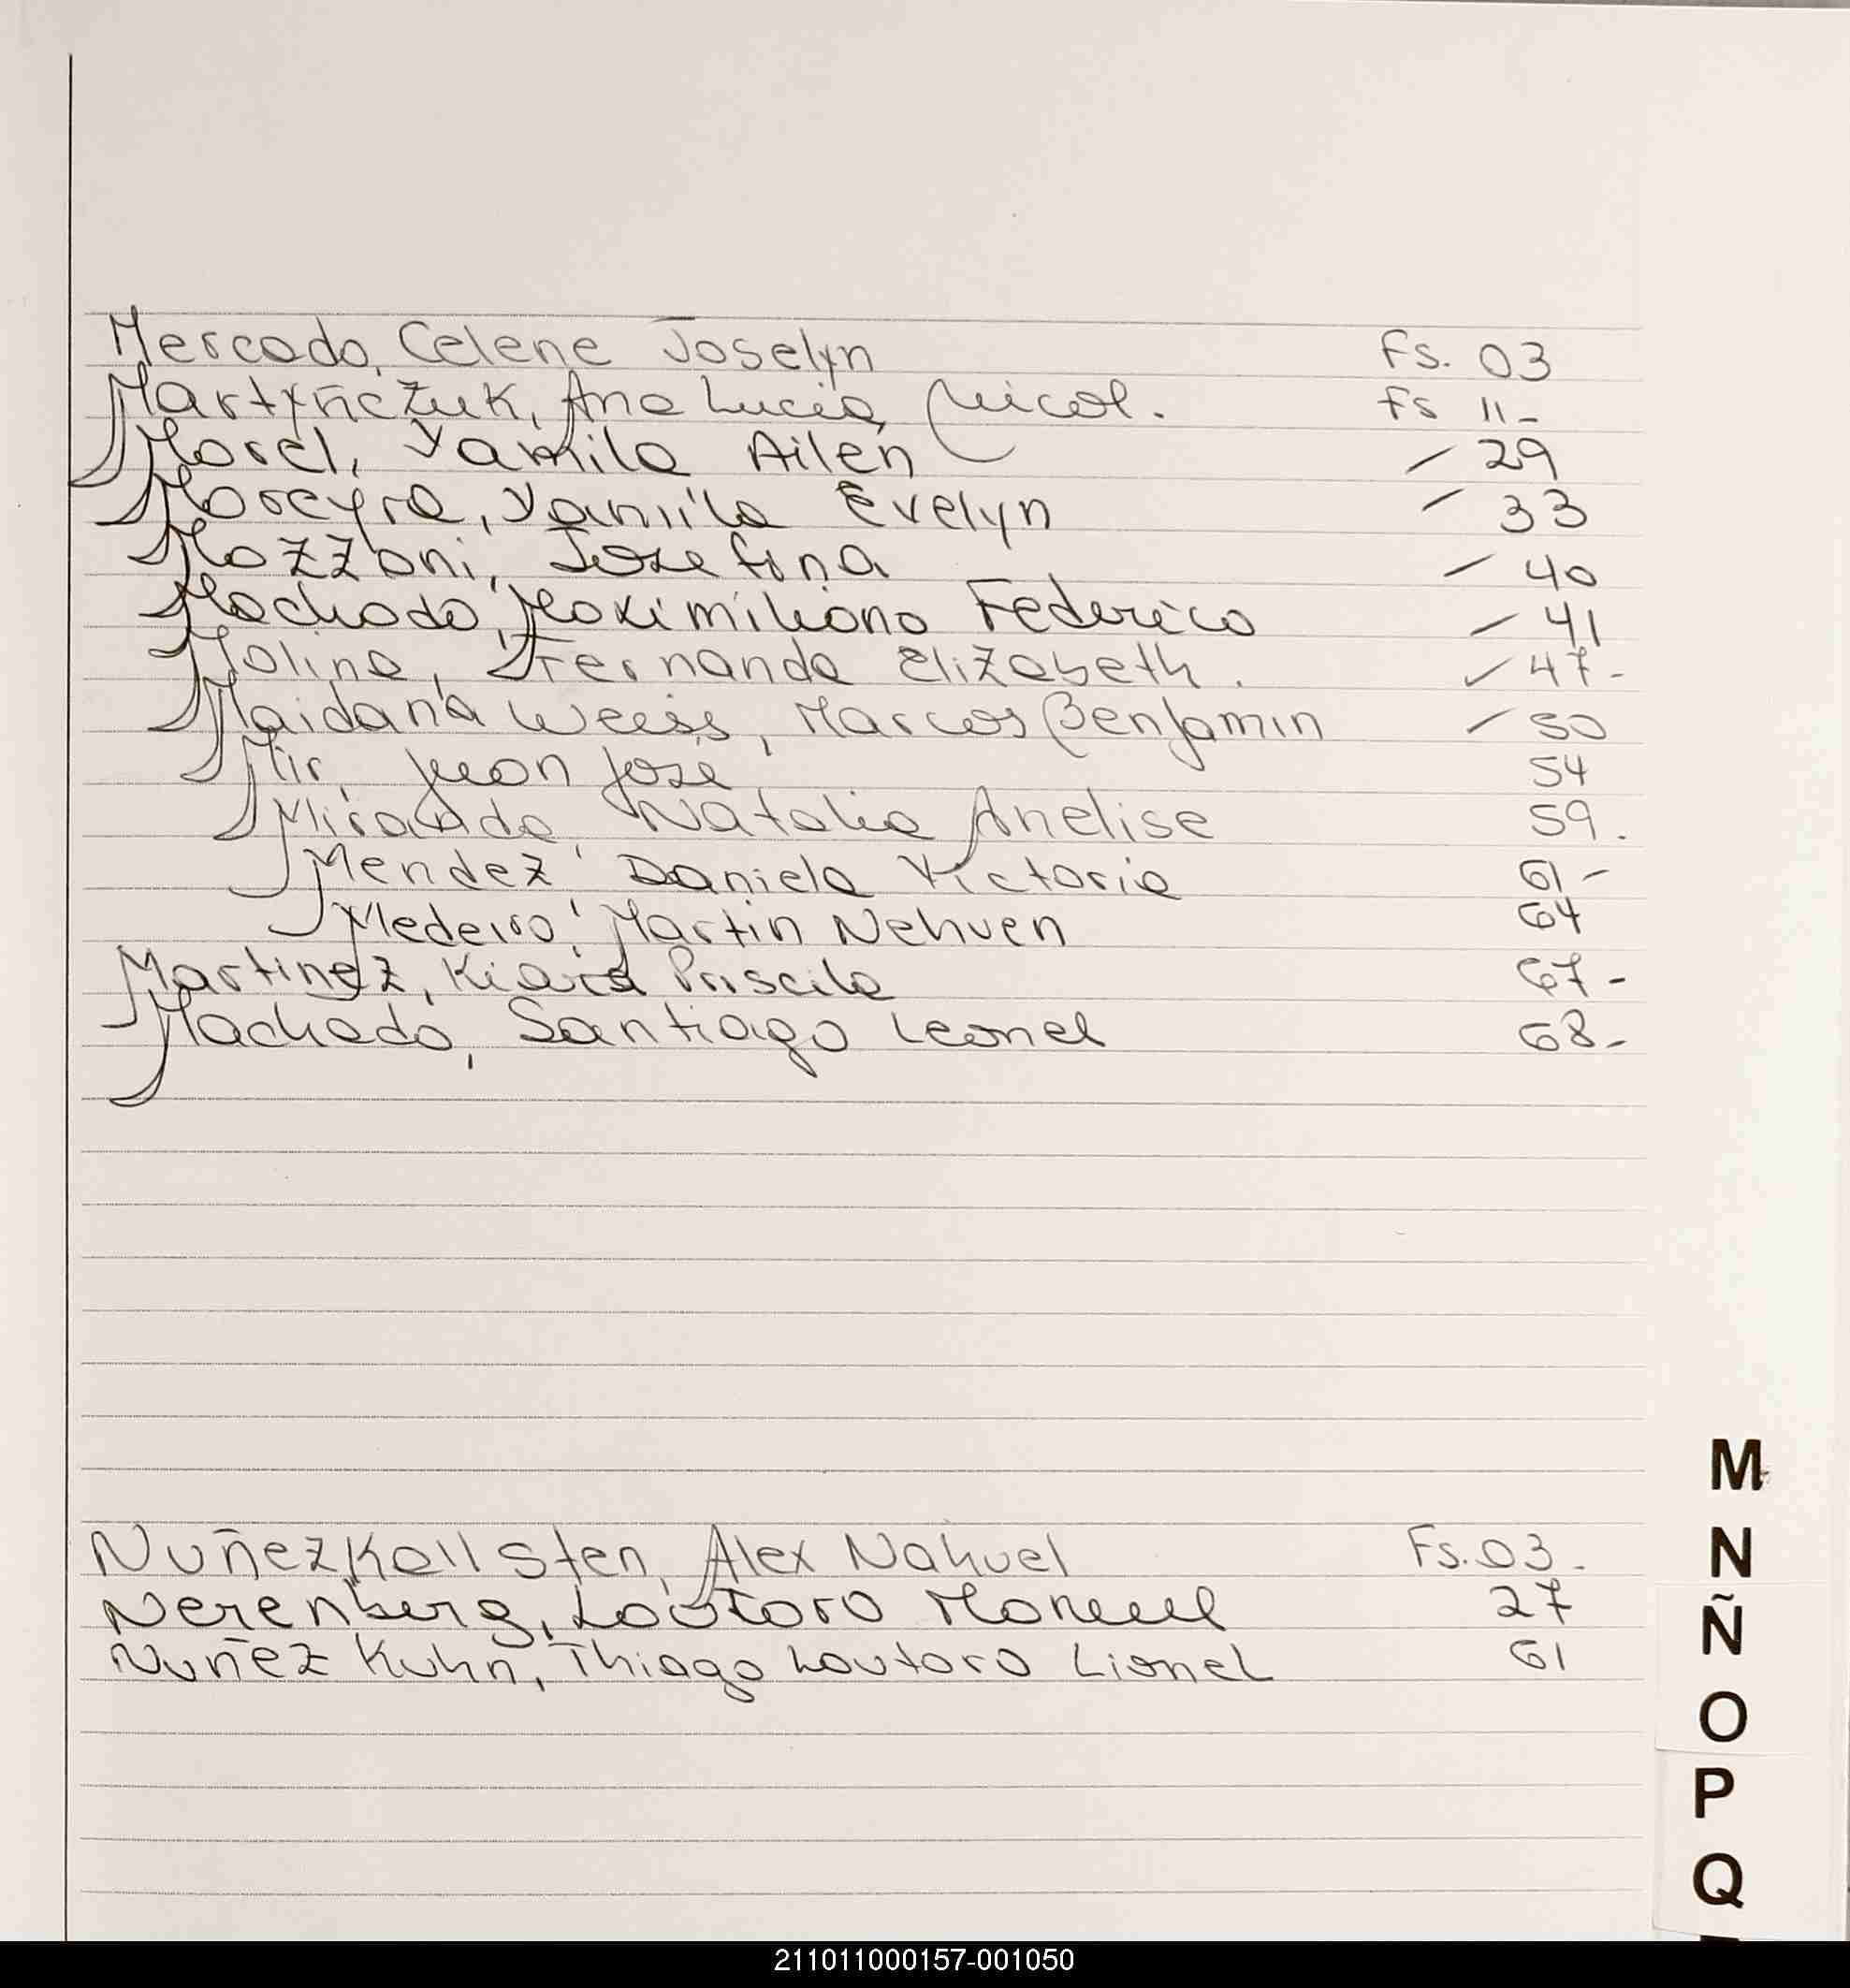 Mercado, Celene Joselyn Fs. 03
Martyñczuk, Ana Lucia Nicol. Fs 11-
Morel, Yamila Ailén / 29
Moreyra, Yamila Evelyn / 33
Mozzoni, Josefina / 40
Machado, Maximiliano Federico / 41
Molina, Fernanda Elizabeth. / 47-
Maidana Weiss, Marcos Benjamin / 50
Mir, Juan José 54
Miranda, Natalia Anelise 59.
Mendez, Daniela Victoria 61-
Medeiro, Martin Nehuen 64
Martinez, Kiara Priscila 67-
Machado, Santiago Leonel 68-
Nuñez Kallsten, Alex Nahuel Fs. 03-
Nerenberg, Lautaro Manuel 27
Nuñez Kuhn, Thiago Lautaro Lionel 61
M
N
Ñ
O
P
Q
211011000157-001050